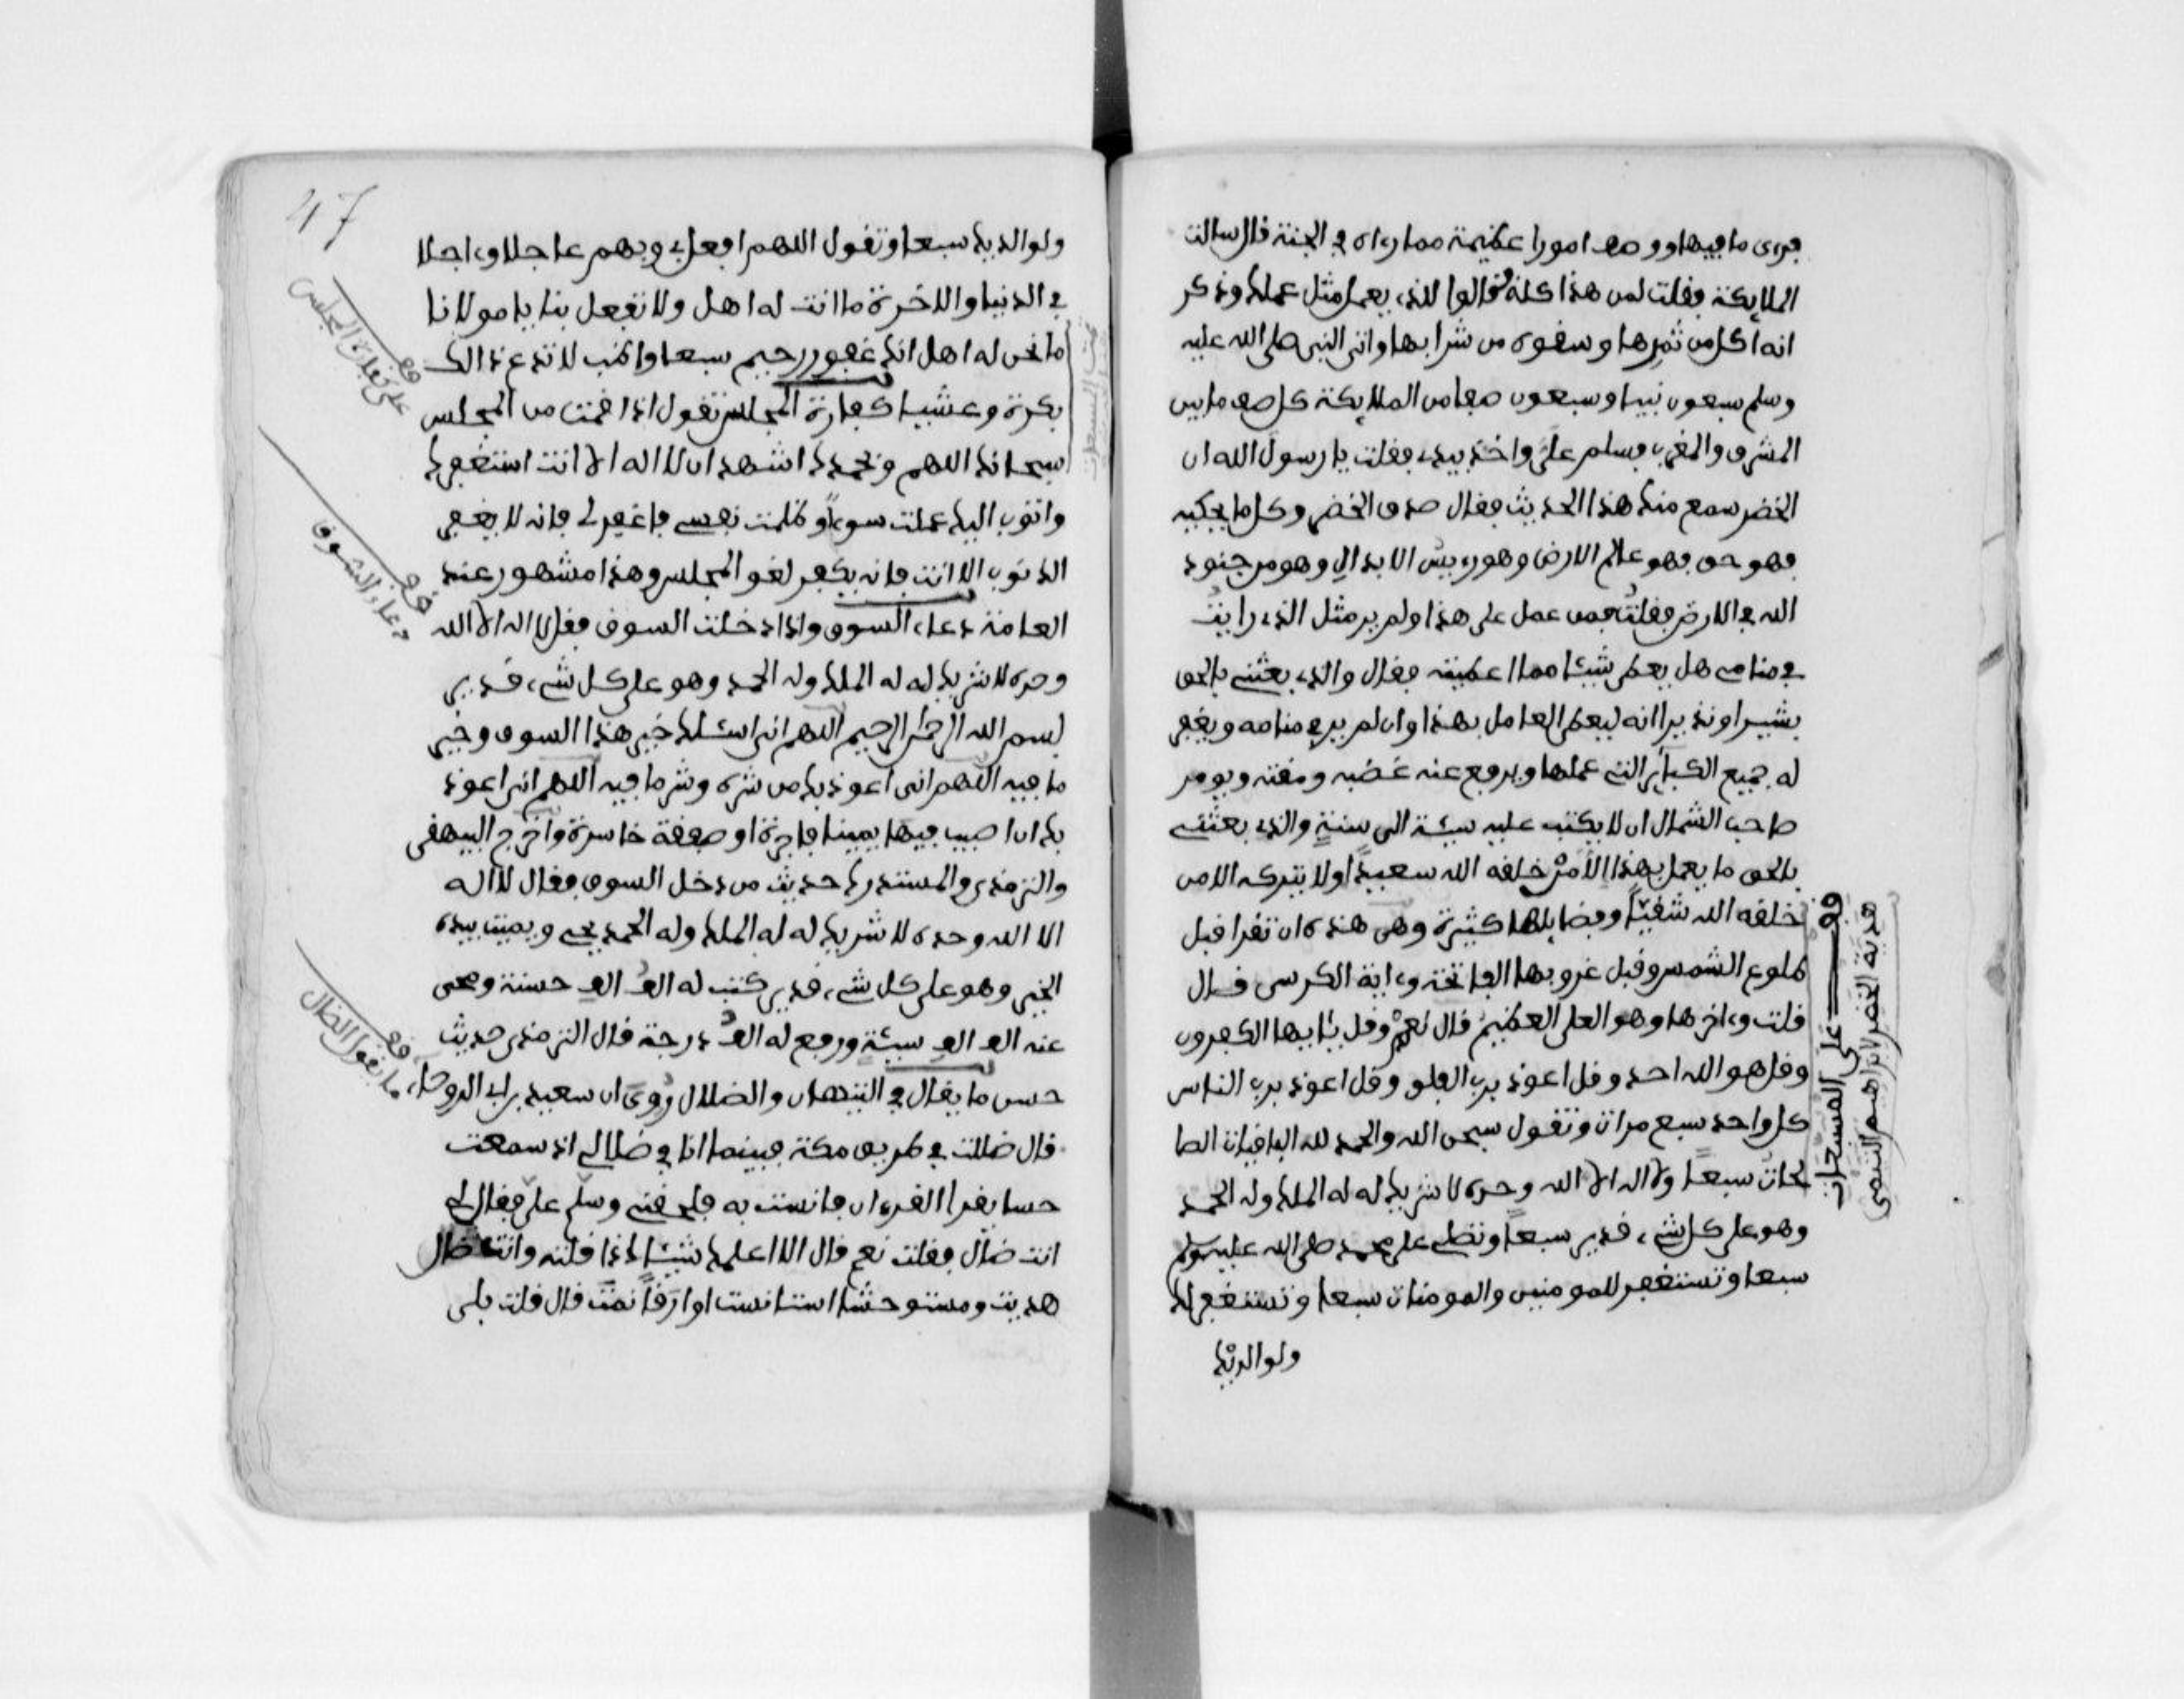 فرءى ما فيها ووصف امورا عظيمة مما رءاه في الجنة قال سالت
الملايكة فقلت لمن هذا كله فقالوا للذي يعمل مثل عملك وذكر
انه اكل من ثمرها وسقوه من شرابها واتى النبي صلى الله عليه
وسلم سبعون نبيا وسبعون صفا من الملايكة كل صف ما بين
المشرق والمغرب فسلم علي واخذ بيدي فقلت يا رسول الله ان
الخضر سمع منك هذا الحديث فقال صدق الخضر وكل ما يحكيه
فهو حق فهو عالم الارض وهو رءيس الابدال وهو من جنود
الله في الارض فقلت فمن عمل على هذا ولم ير مثل الذي رايت
في منامي هل يعطى شيئا مما اعطيته فقال والذي بعثني بالحق
بشيرا ونذيرا انه ليعطى العامل بهذا وان لم ير في منامه ويغفر
له جميع الكباير التي عملها ويرفع عنه غضبه ومقته ويومر
صاحب الشمال ان لا يكتب عليه سيئة الى سنة والذي بعثني
بالحق ما يعمل بهذا الا من خلقه الله سعيدا ولا يتركه الا من
خلقه الله شقيا وفضايلها كثيرة وهي هذه ان تقرا قبل
طلوع الشمس وقبل غروبها الفاتحة وءاية الكرسي قال
قلت وءاخرها وهو العلي العظيم قال نعم وقل يايها الكفرون
وقل هو الله احد وقل اعوذ برب الفلق وقل اعوذ برب الناس
كل واحد سبع مرات وتقول سبحن الله والحمد لله الباقيات الصا
لحات سبعا ولا اله الا الله وحده لا شريك له له الملك وله الحمد
وهو على كل شيء قدير سبعا وتصلي على محمد صلى الله عليه وسلم
سبعا وتستغفر للمومنين والمومنات سبعا وتستغفر لك
ولوالديك
قف على المسبعات
هدية الخضر لابراهيم التيمي
47
ولوالديك سبعا وتقول اللهم افعل بي وبهم عاجلا وءاجلا
في الدنيا والاخرة ما انت له اهل ولا تفعل بنا يا مولانا
ما نحن له اهل انك غفور رحيم سبعا واظب لا تدع ذالك
بكرة وعشيا كفارة المجلس تقول اذا قمت من المجلس
سبحانك اللهم وبحمدك اشهد ان لا اله الا انت استغفرك
واتوب اليك عملت سوءا وظلمت نفسي فاغفر لي فانه لا يغفر
الذنوب الا انت فانه يكفر لغو المجلس وهذا مشهور عند
العامة دعاء السوق واذا دخلت السوق فقل لا اله الا الله
وحده لا شريك له له الملك وله الحمد وهو على كل شيء قدير
بسم الله الرحمن الرحيم اللهم اني اسئلك خير هذا السوق وخير
ما فيه اللهم اني اعوذ بك من شره وشر ما فيه اللهم اني اعوذ
بك ان اصيب فيها يمينا فاجرة او صفقة خاسرة واخرج البيهقي
والترمذي والمستدرك حديث من دخل السوق فقال لا اله
الا الله وحده لا شريك له له الملك وله الحمد يحيي ويميت بيده
الخير وهو على كل شيء قدير كتب له الف الف حسنة ومحى
عنه الف الف سيئة ورفع له الف درجة قال الترمذي حديث
حسن ما يقال في التيهان والضلال روي ان سعيد بن ابي الروحاء
قال ضللت في طريق مكة فبينما انا في ضلالي اذ سمعت
حسا يقرا القرءان فانست به فلحقني وسلم علي فقال لي
انت ضال فقلت نعم قال الا اعلمك شيئا اذا قلته وانت ضال
هديت ومستوحشا استانست او ارقا نمت قال قلت بلى
قف على كفارة المجلس
قف دعاء السوق
قف ما يقول الضال